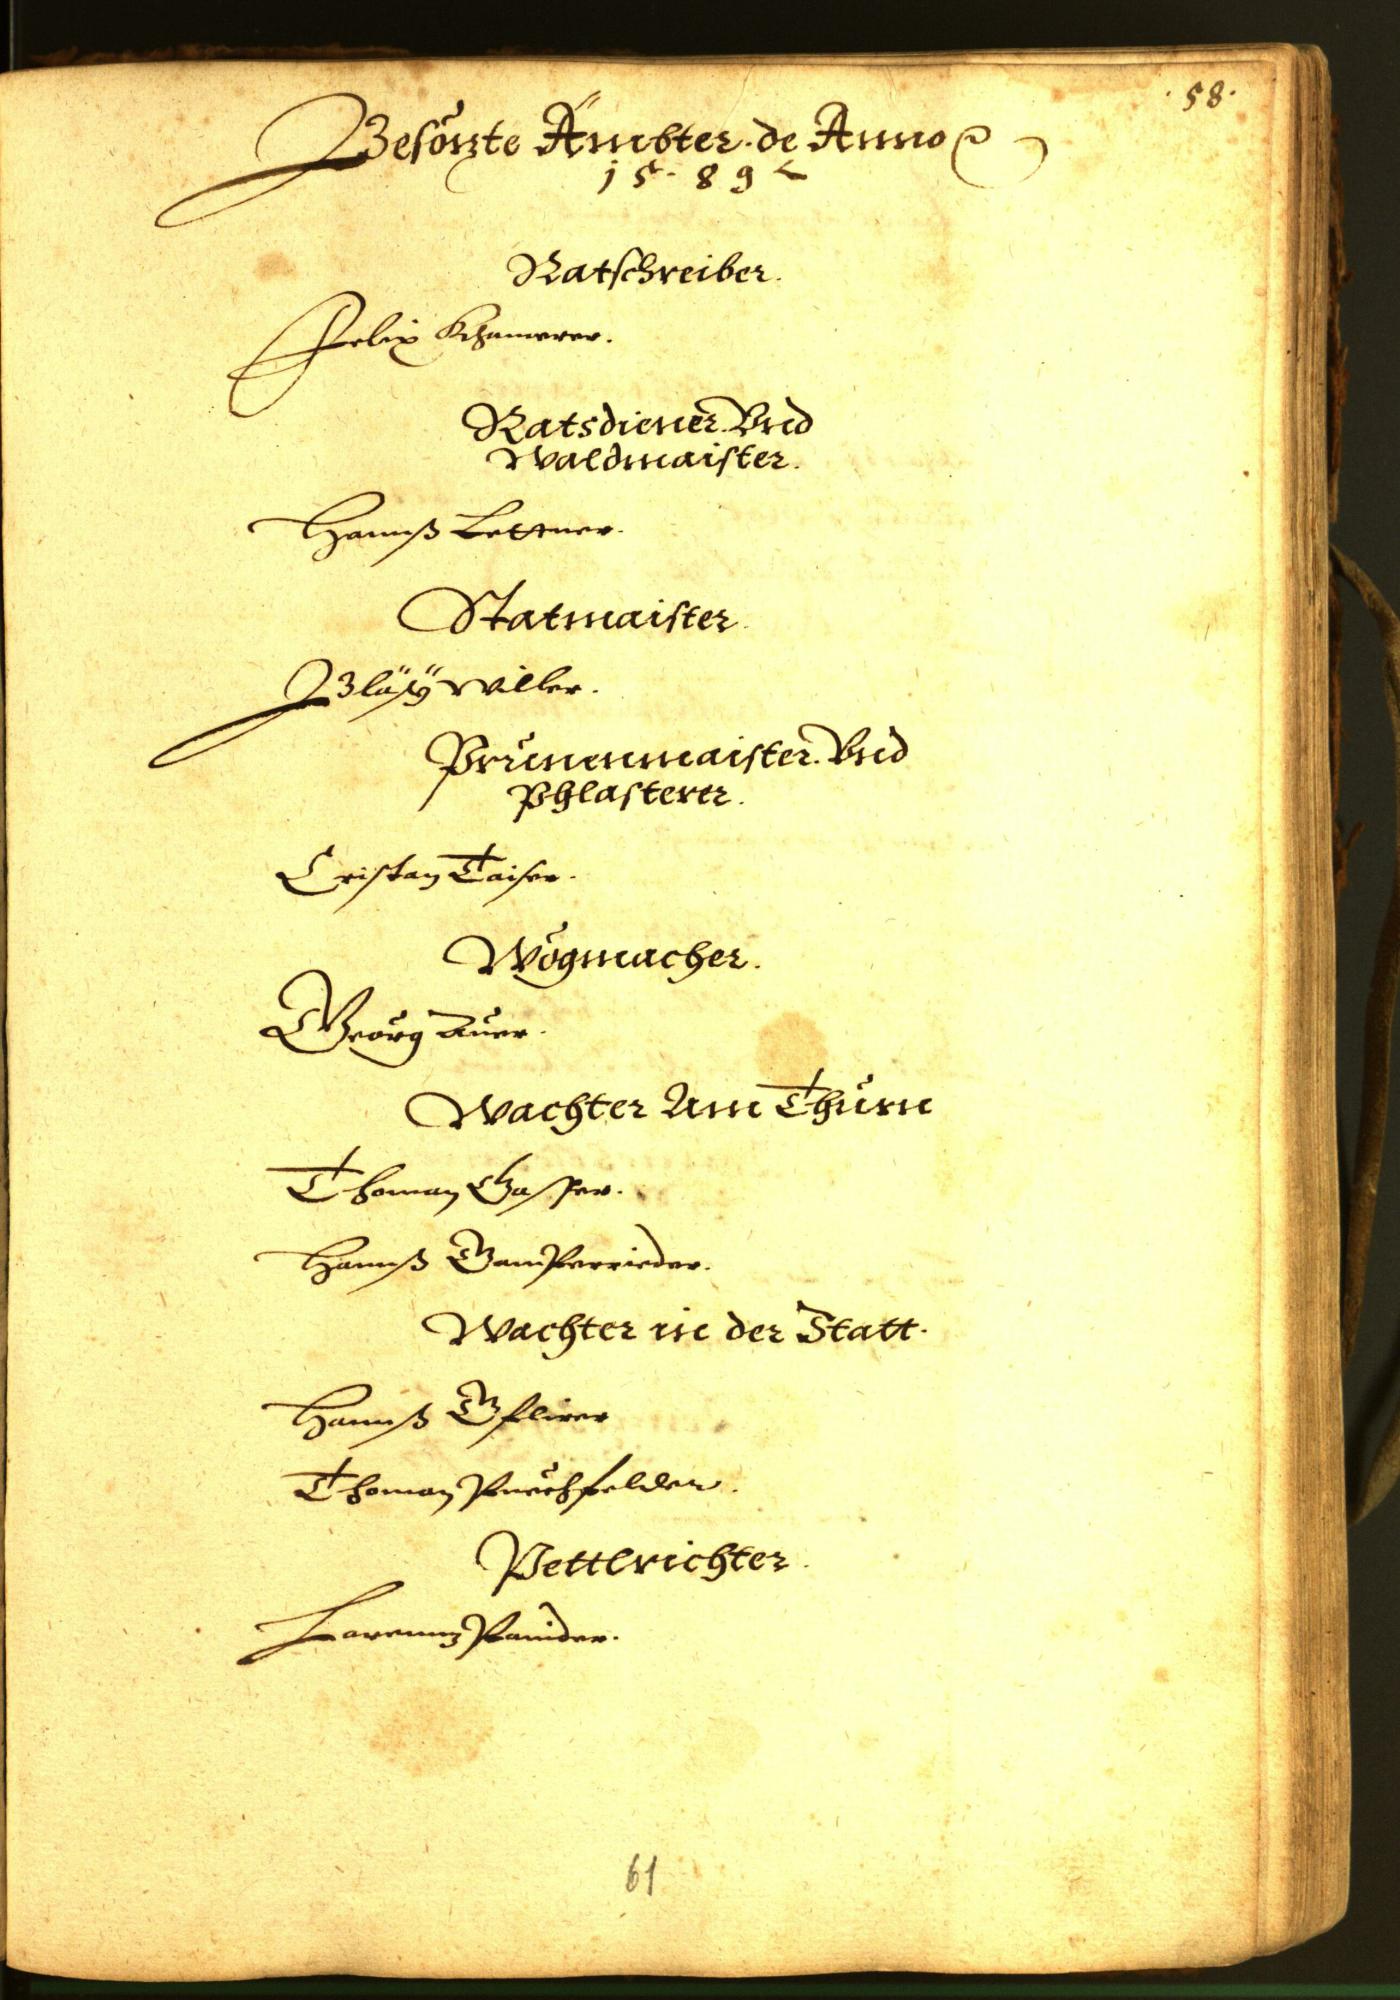 .58.
Besörzte Ämbter. de Anno
15.89
Ratschreiber.
Felix Khamerer.
Ratsdiener. Vnd
Waldmaister.
Hannß Lettner.
Statmaister.
Bläsÿ Willer.
Prunenmaister. Vnd
Phlasterer.
Cristan Taiser.
Wögmacher.
Georg Auer.
Wachter Am Thurn
Thoman Gasser.
Hannß Gamperrieder.
Wachter in der Statt.
Hannß Gflirer
Thoman Puechfelder.
Pettlrichter.
Larenntz Painder.
61